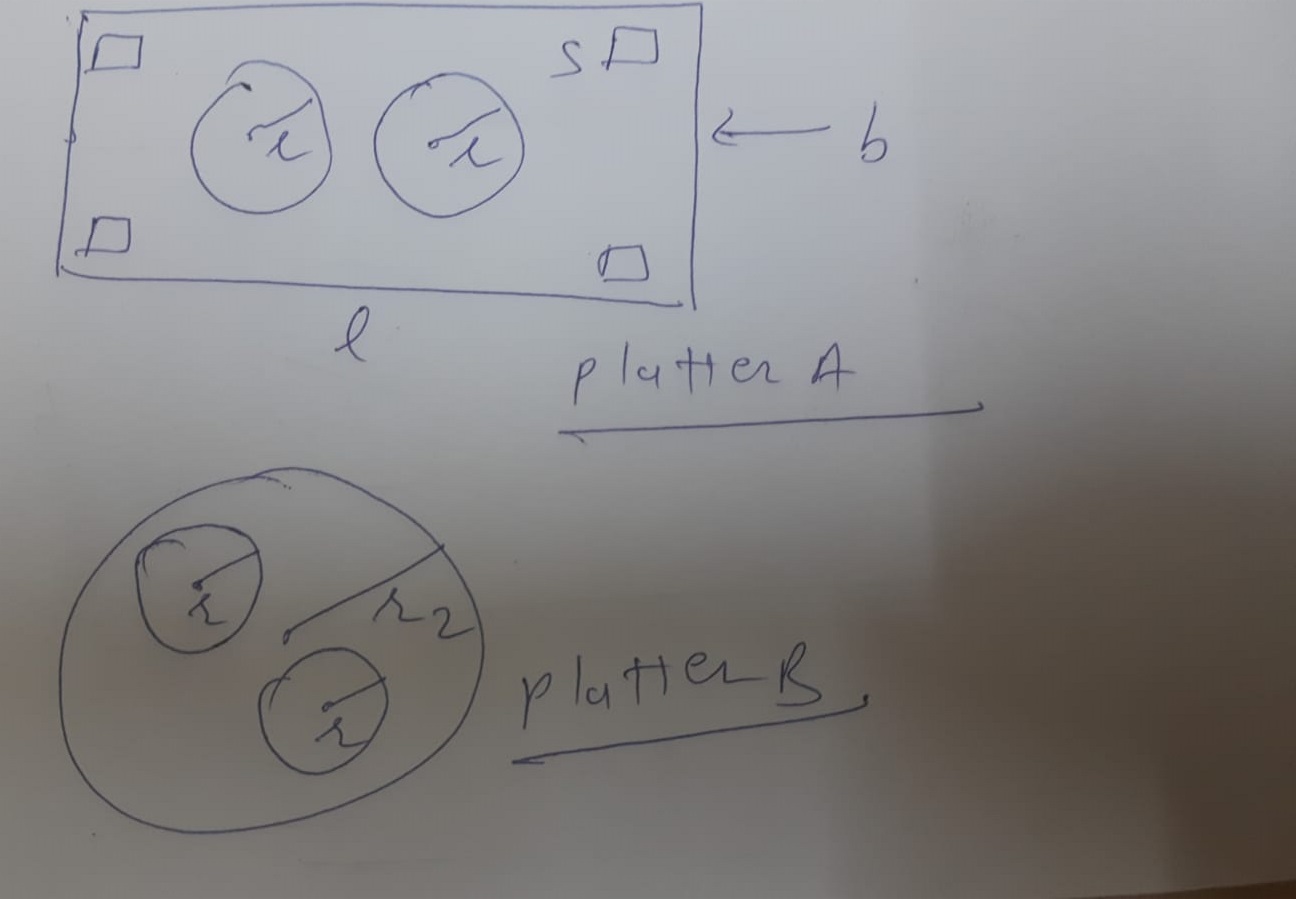 S
b
r r
l
platter A
r
r2
r
platter B